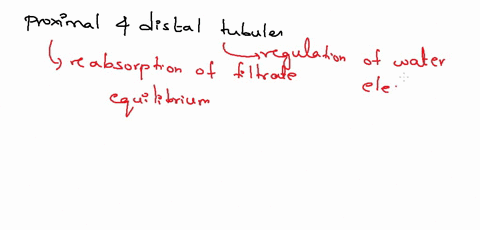 proximal & distal tubules
↳ reabsorption of filtrate
equilibrium
↳ regulation of water
ele